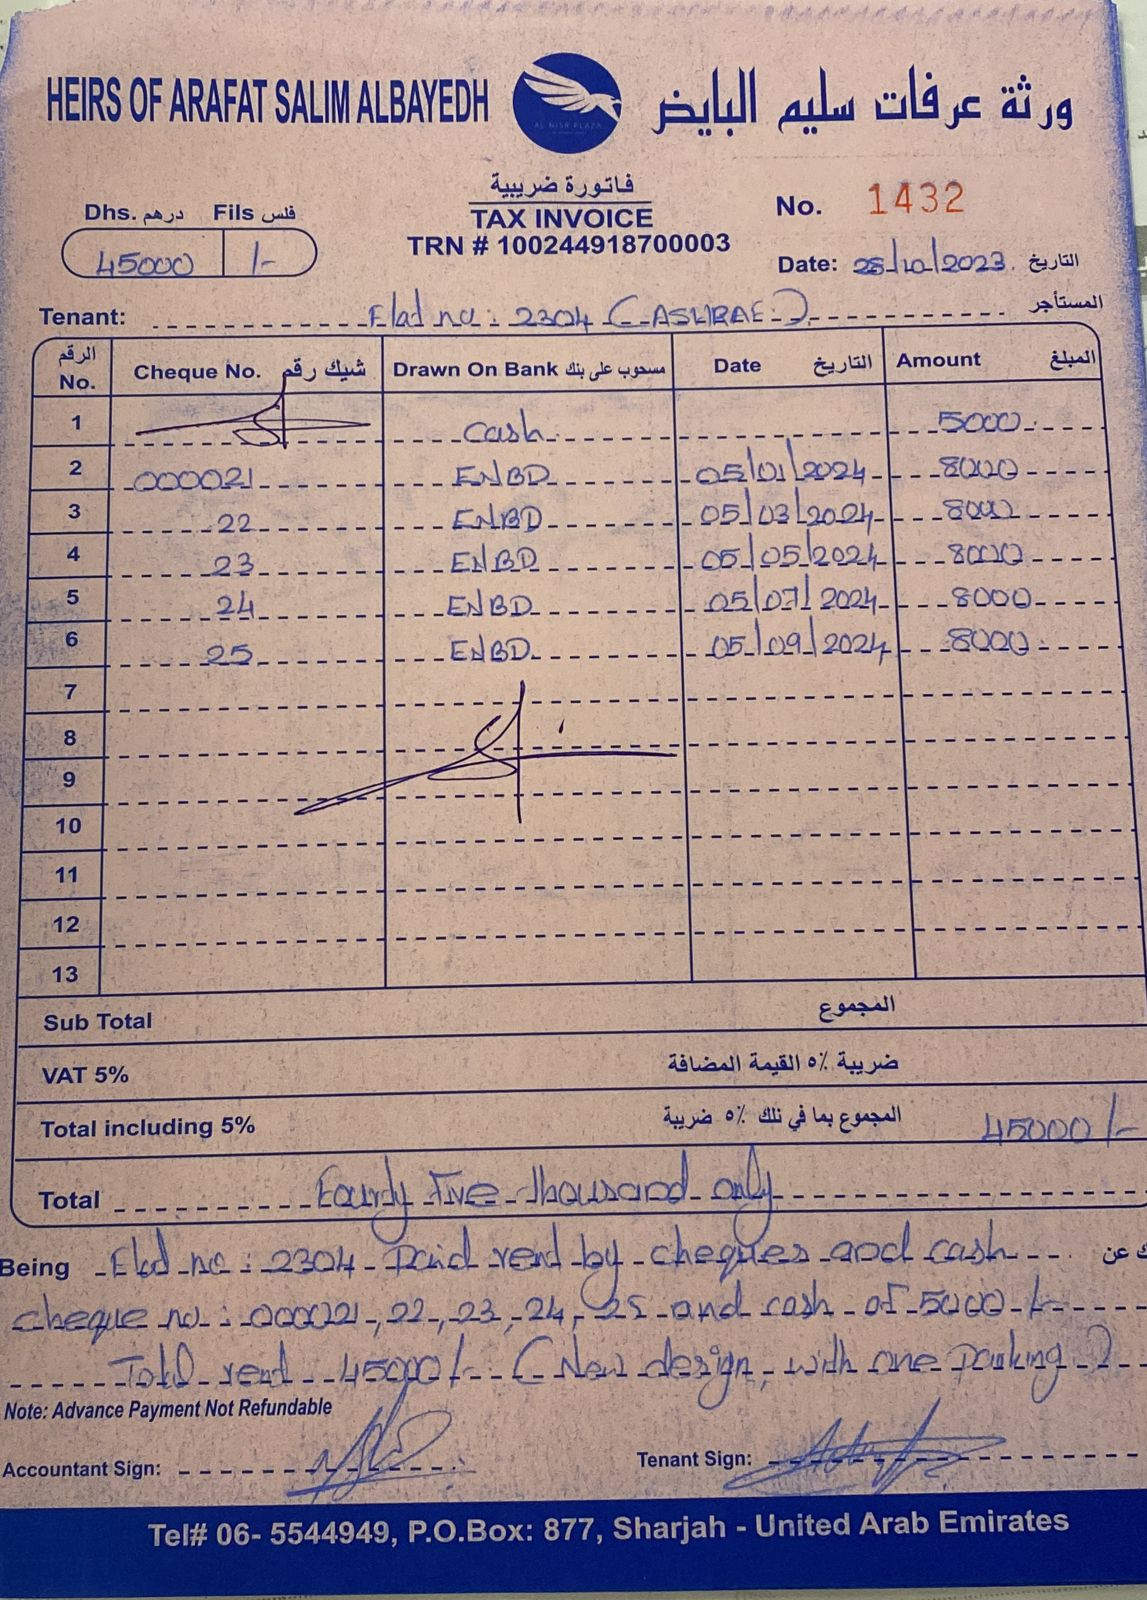 HEIRS OF ARAFAT SALIM ALBAYEDH
AL NISR PLAZA
ورثة عرفات سليم البايض
فاتورة ضريبية
TAX INVOICE
TRN # 100244918700003
No. 1432
Dhs. درهم Fils فلس
45000 /-
Date: 28/10/2023 التاريخ
Tenant: Flat no: 2304 (ASHRAF) المستأجر
الرقم No. Cheque No. شيك رقم Drawn On Bank مسحوب على بنك Date التاريخ Amount المبلغ
1 Cash 5000
2 000021 ENBD 05/01/2024 8000
3 22 ENBD 05/03/2024 8000
4 23 ENBD 05/05/2024 8000
5 24 ENBD 05/07/2024 8000
6 25 ENBD 05/09/2024 8000
7
8
9
10
11
12
13
Sub Total المجموع
VAT 5% ضريبة ٥٪ القيمة المضافة
Total including 5% المجموع بما في ذلك ٥٪ ضريبة 45000/-
Total Fourty Five thousand only
Being Flat no: 2304 Paid rent by cheques and cash
cheque no: 000021, 22, 23, 24, 25 and cash of 5000/-
Total rent 45000/- (New design, with one parking)
Note: Advance Payment Not Refundable
Accountant Sign: Tenant Sign:
Tel# 06- 5544949, P.O.Box: 877, Sharjah - United Arab Emirates